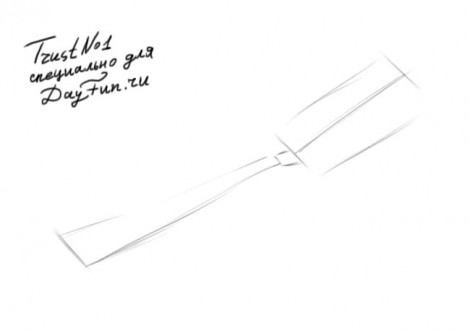 TrustNo1
специально для
DayFun.ru